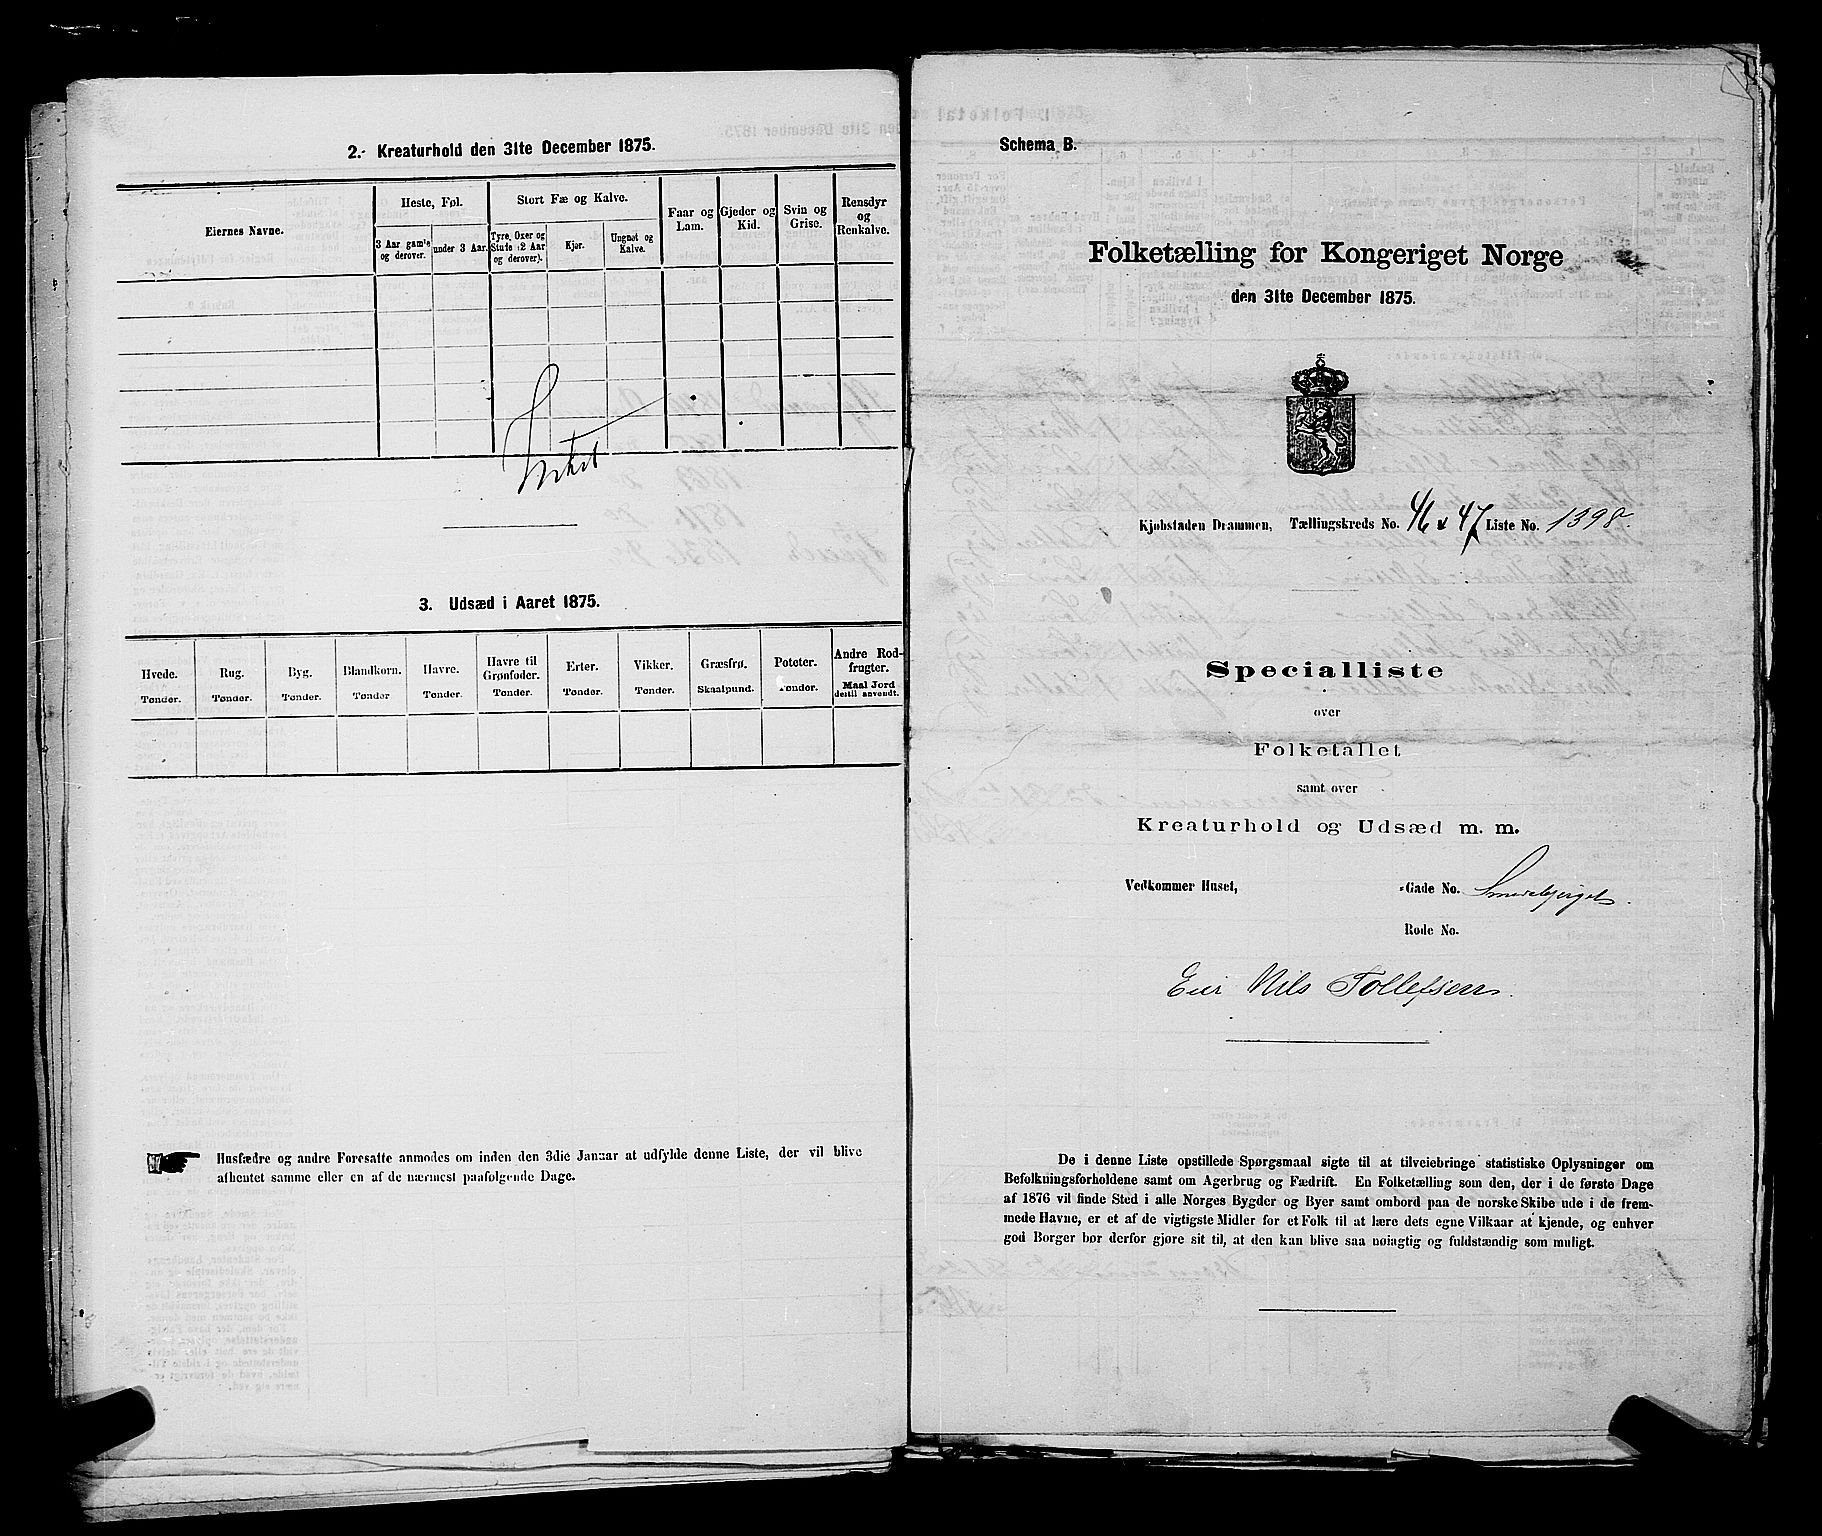 2. Kreaturhold den 31te December 1875.
Eiernes Navne.
Heste, Føl.
Stort Fæ og Kalve.
Faar og Lam.
Gjeder og Kid.
Svin og Grise.
Rensdyr og Renkalve.
3 Aar gamle og derover.
under 3 Aar.
Tyre, Oxer og Stute (2 Aar og derover).
Kjør.
Ungnøt og Kalve.
3. Udsæd i Aaret 1875.
Hvede. Rug. Byg. Blandkorn. Havre. Havre til Grønfoder. Erter. Vikker. Græsfrø. Poteter. Andre Rodfrugter.
Tønder. Tønder. Tønder. Tønder Tønder. Tønder. Tønder. Tønder. Skaalpund. Tønder. Maal Jord dertil anvendt.
Husfædre og andre Foresatte anmodes om inden den 3die Januar at udfylde denne Liste, der vil blive
afhentet samme eller en af de nærmest paafølgende Dage.
Schema B.
Folketælling for Kongeriget Norge
den 31te December 1875.
Kjøbstaden Drammen, Tællingskreds No. 46 & 47 Liste No. 1398.
Specialliste
over
Folketallet
samt over
Kreaturhold og Udsæd m. m.
Vedkommer Huset, -Gade No. Smedebjerget.
Rode No.
Eier Nils Tollefsen.
De i denne Liste opstillede Spørgsmaal sigte til at tilveiebringe statistiske Oplysninger om
Befolkningsforholdene samt om Agerbrug og Fædrift. En Folketælling som den, der i de første Dage
af 1876 vil finde Sted i alle Norges Bygder og Byer samt ombord paa de norske Skibe ude i de frem-
mede Havne, er et af de vigtigste Midler for et Folk til at lære dets egne Vilkaar at kjende, og enhver
god Borger bør derfor gjøre sit til, at den kan blive saa nøiagtig og fuldstændig som muligt.